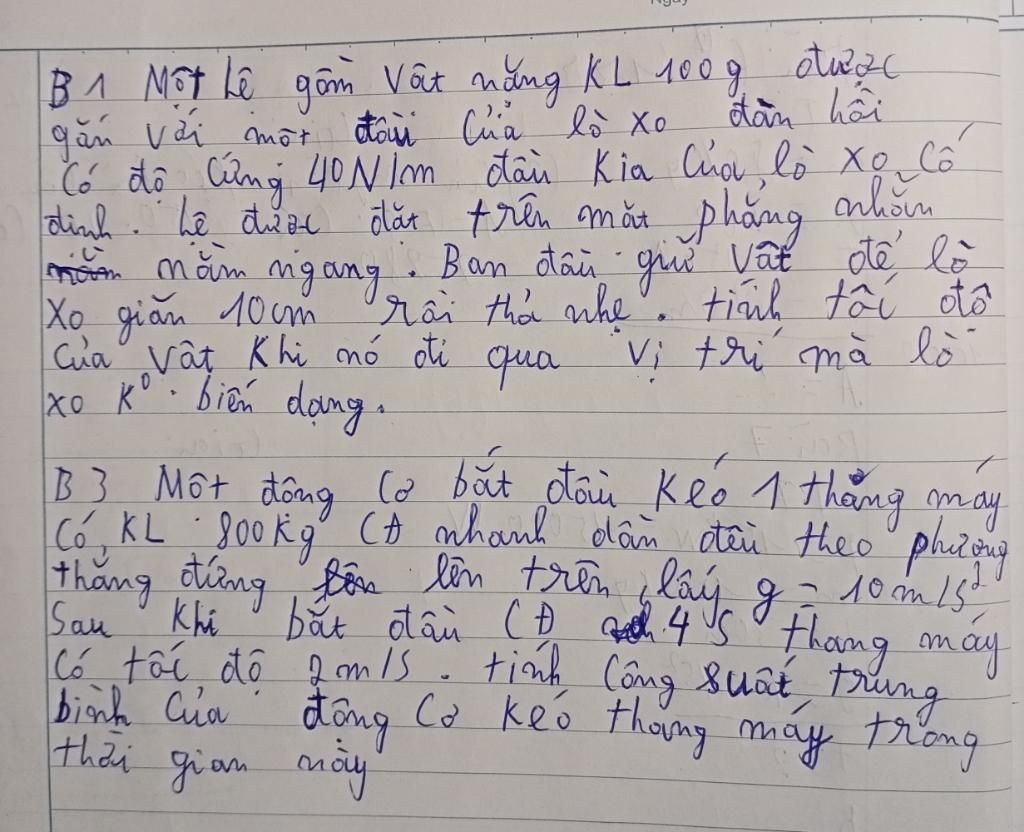 Ngày
B1 Một hệ gồm vật nặng KL 100g được
gắn với một đầu của lò xo đàn hồi
có độ cứng 40N/m đầu kia của lò xo cố
định. Hệ được đặt trên mặt phẳng nhẵn
nằm ngang. Ban đầu giữ vật để lò
xo giãn 10cm rồi thả nhẹ. tính tốc độ
của vật khi nó đi qua vị trí mà lò
xo K⁰. biến dạng.
B3 Một động cơ bắt đầu kéo 1 thẳng máy
có KL 800kg CĐ nhanh dần đều theo phương
thẳng đứng lên trên, lấy g = 10m/s²
Sau khi bắt đầu CĐ 4s thang máy
có tốc độ 2m/s. tính công suất trung
bình của động cơ kéo thang máy trong
thời gian này